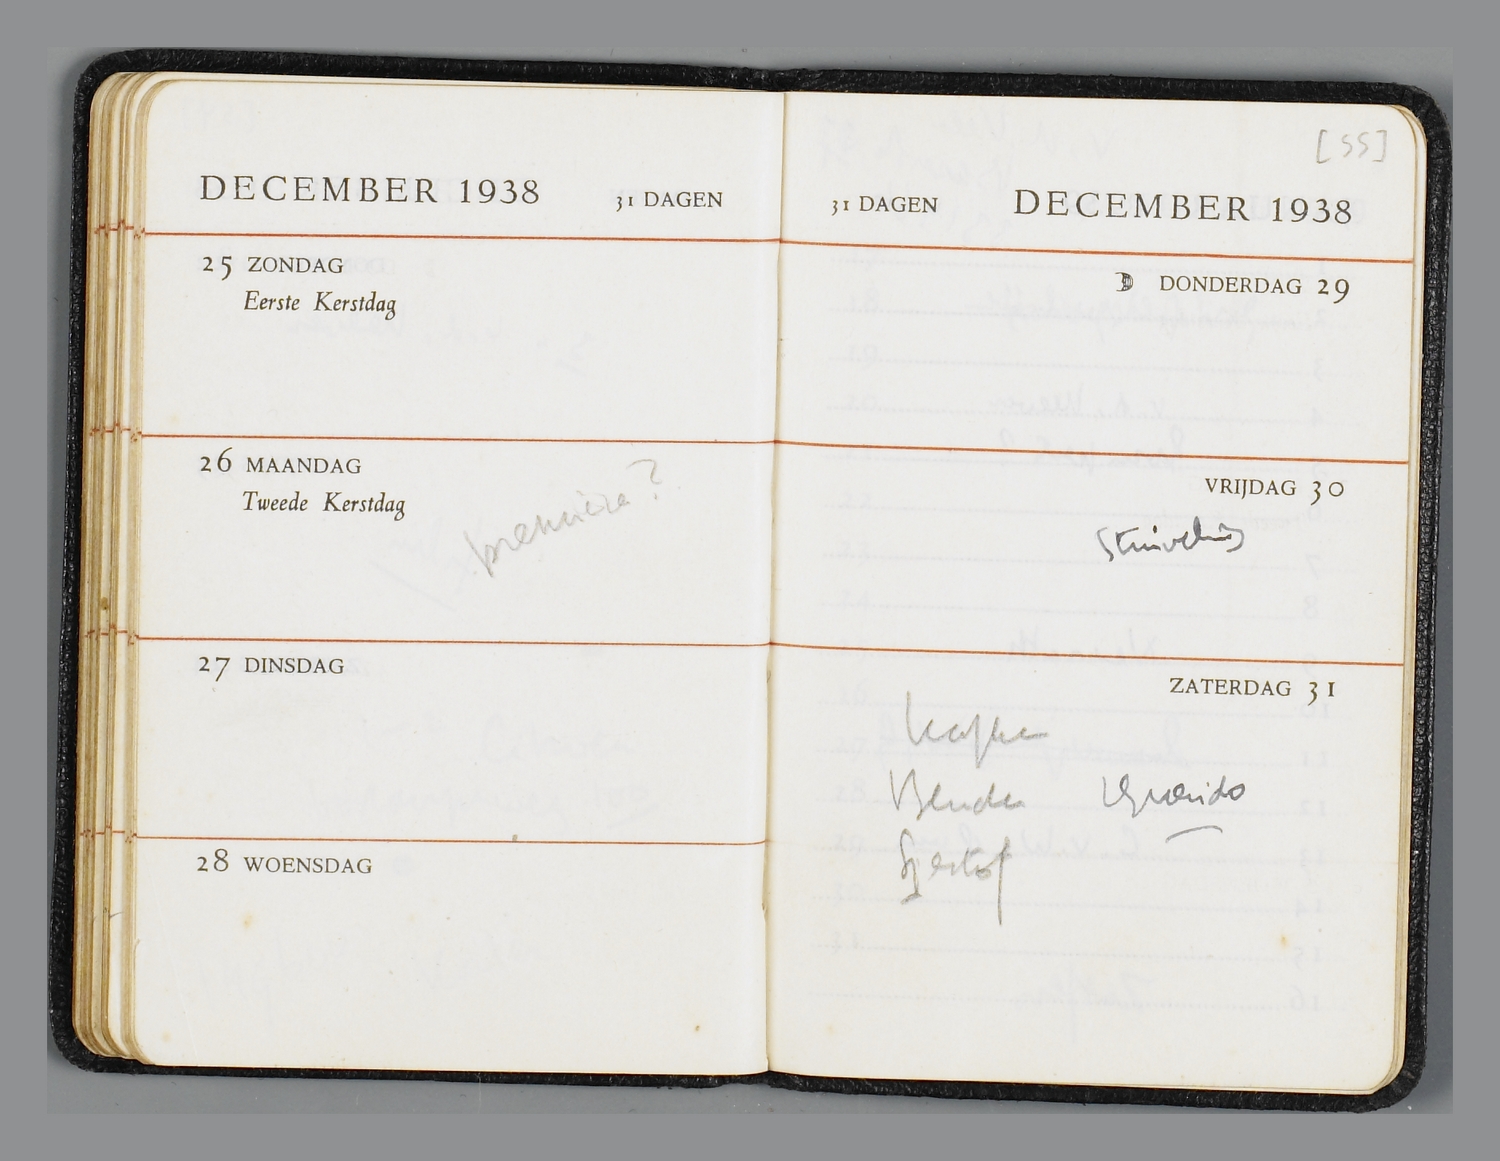 DECEMBER 1938 31 DAGEN
25 ZONDAG
Eerste Kerstdag
26 MAANDAG
Tweede Kerstdag
première?
27 DINSDAG
28 WOENSDAG
[55]
31 DAGEN DECEMBER 1938
DONDERDAG 29
VRIJDAG 30
Stuiveling
ZATERDAG 31
Kafka
Benda Querido